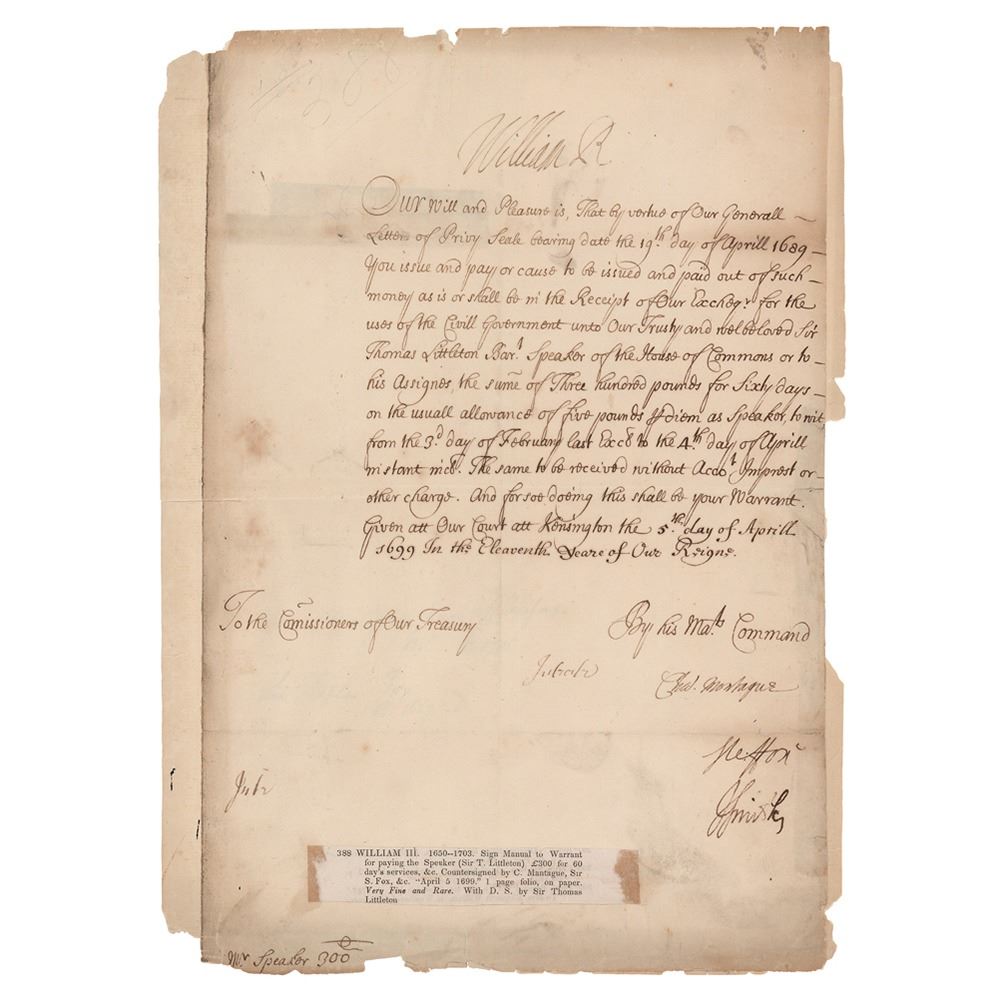 388
William R
Our Will and Pleasure is, That by vertue of Our Generall
Letters of Privy Seale bearing date the 19th day of Aprill 1689
You issue and pay or cause to be issued and paid out of such
money as is or shall be in the Receipt of Our Excheqr for the
uses of the Civill Government unto Our Trusty and welbeloved Sir
Thomas Littleton Bart Speaker of the House of Commons or to
his Assignes, the sume of Three hundred pounds for Sixty days
on the usuall allowance of five pounds ℘ diem as Speaker, to wit,
from the 3d day of February last Excd to the 4th day of Aprill
instant incd. The same to be received without Accot Imprest or
other charge. And for soe doeing this shall be your Warrant.
Given att Our Court att Kensington the 5th day of Aprill
1699 In the Eleaventh Yeare of Our Reigne.
To the Comissioners of Our Treasury
By his Mats Command
Montague
388 WILLIAM III. 1650--1703. Sign Manual to Warrant
for paying the Speaker (Sir T. Littleton) £300 for 60
day's services, &c. Countersigned by C. Mantague, Sir
S. Fox, &c. "April 5 1699." 1 page folio, on paper.
Very Fine and Rare. With D. S. by Sir Thomas
Littleton
Mr Speaker 300